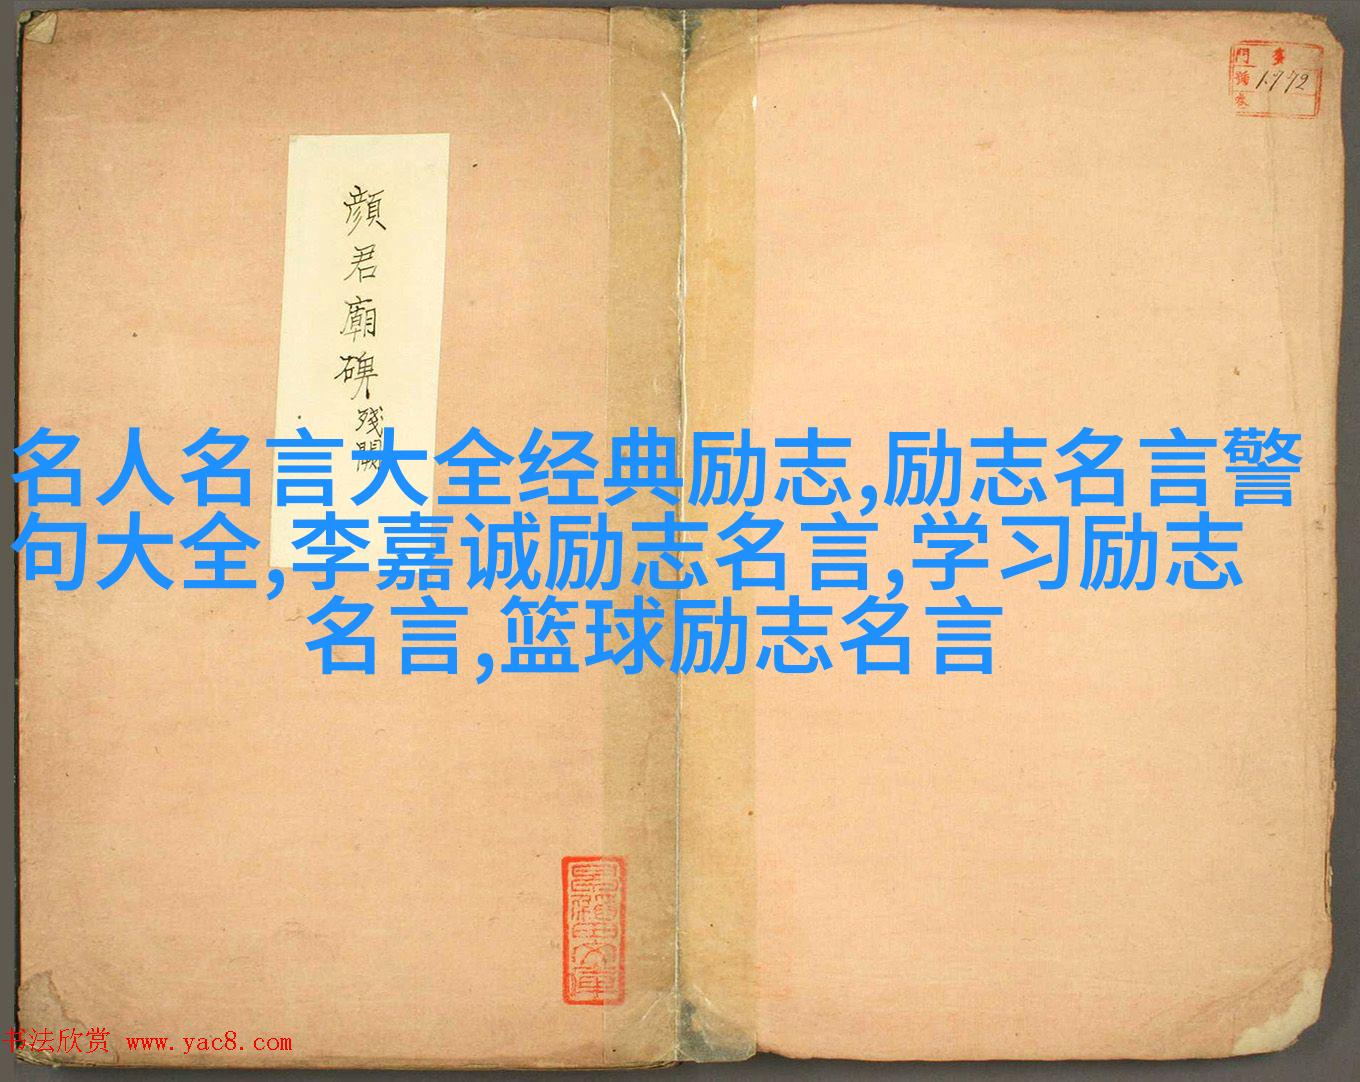 門 番
號 1772
巻
顔君廟碑
残闕
名人名言大全经典励志,励志名言警
句大全,李嘉诚励志名言,学习励志
名言,篮球励志名言
书法欣赏 www.yac8.com